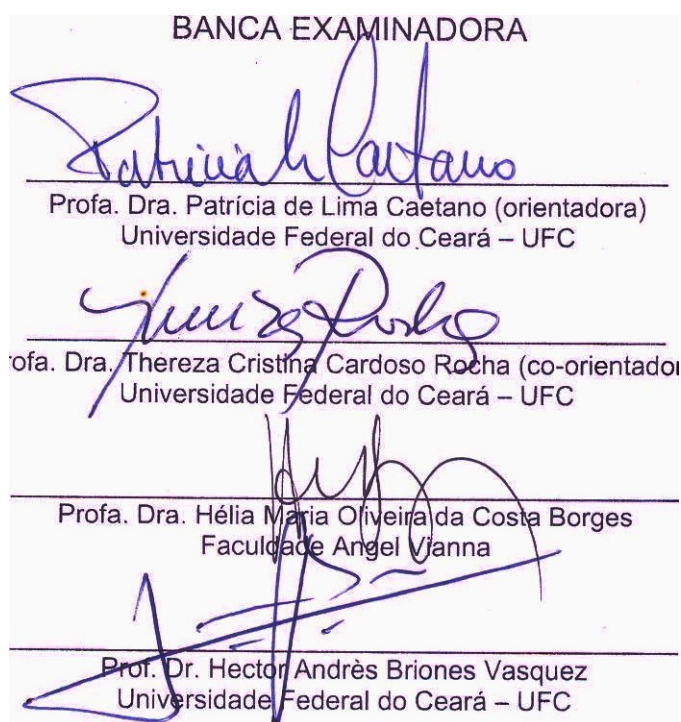 BANCA EXAMINADORA
Patricia Caetano
Profa. Dra. Patrícia de Lima Caetano (orientadora)
Universidade Federal do Ceará – UFC
rofa. Dra. Thereza Cristina Cardoso Rocha (co-orientador
Universidade Federal do Ceará – UFC
Profa. Dra. Hélia Maria Oliveira da Costa Borges
Faculdade Angel Vianna
Prof. Dr. Hector Andrès Briones Vasquez
Universidade Federal do Ceará – UFC